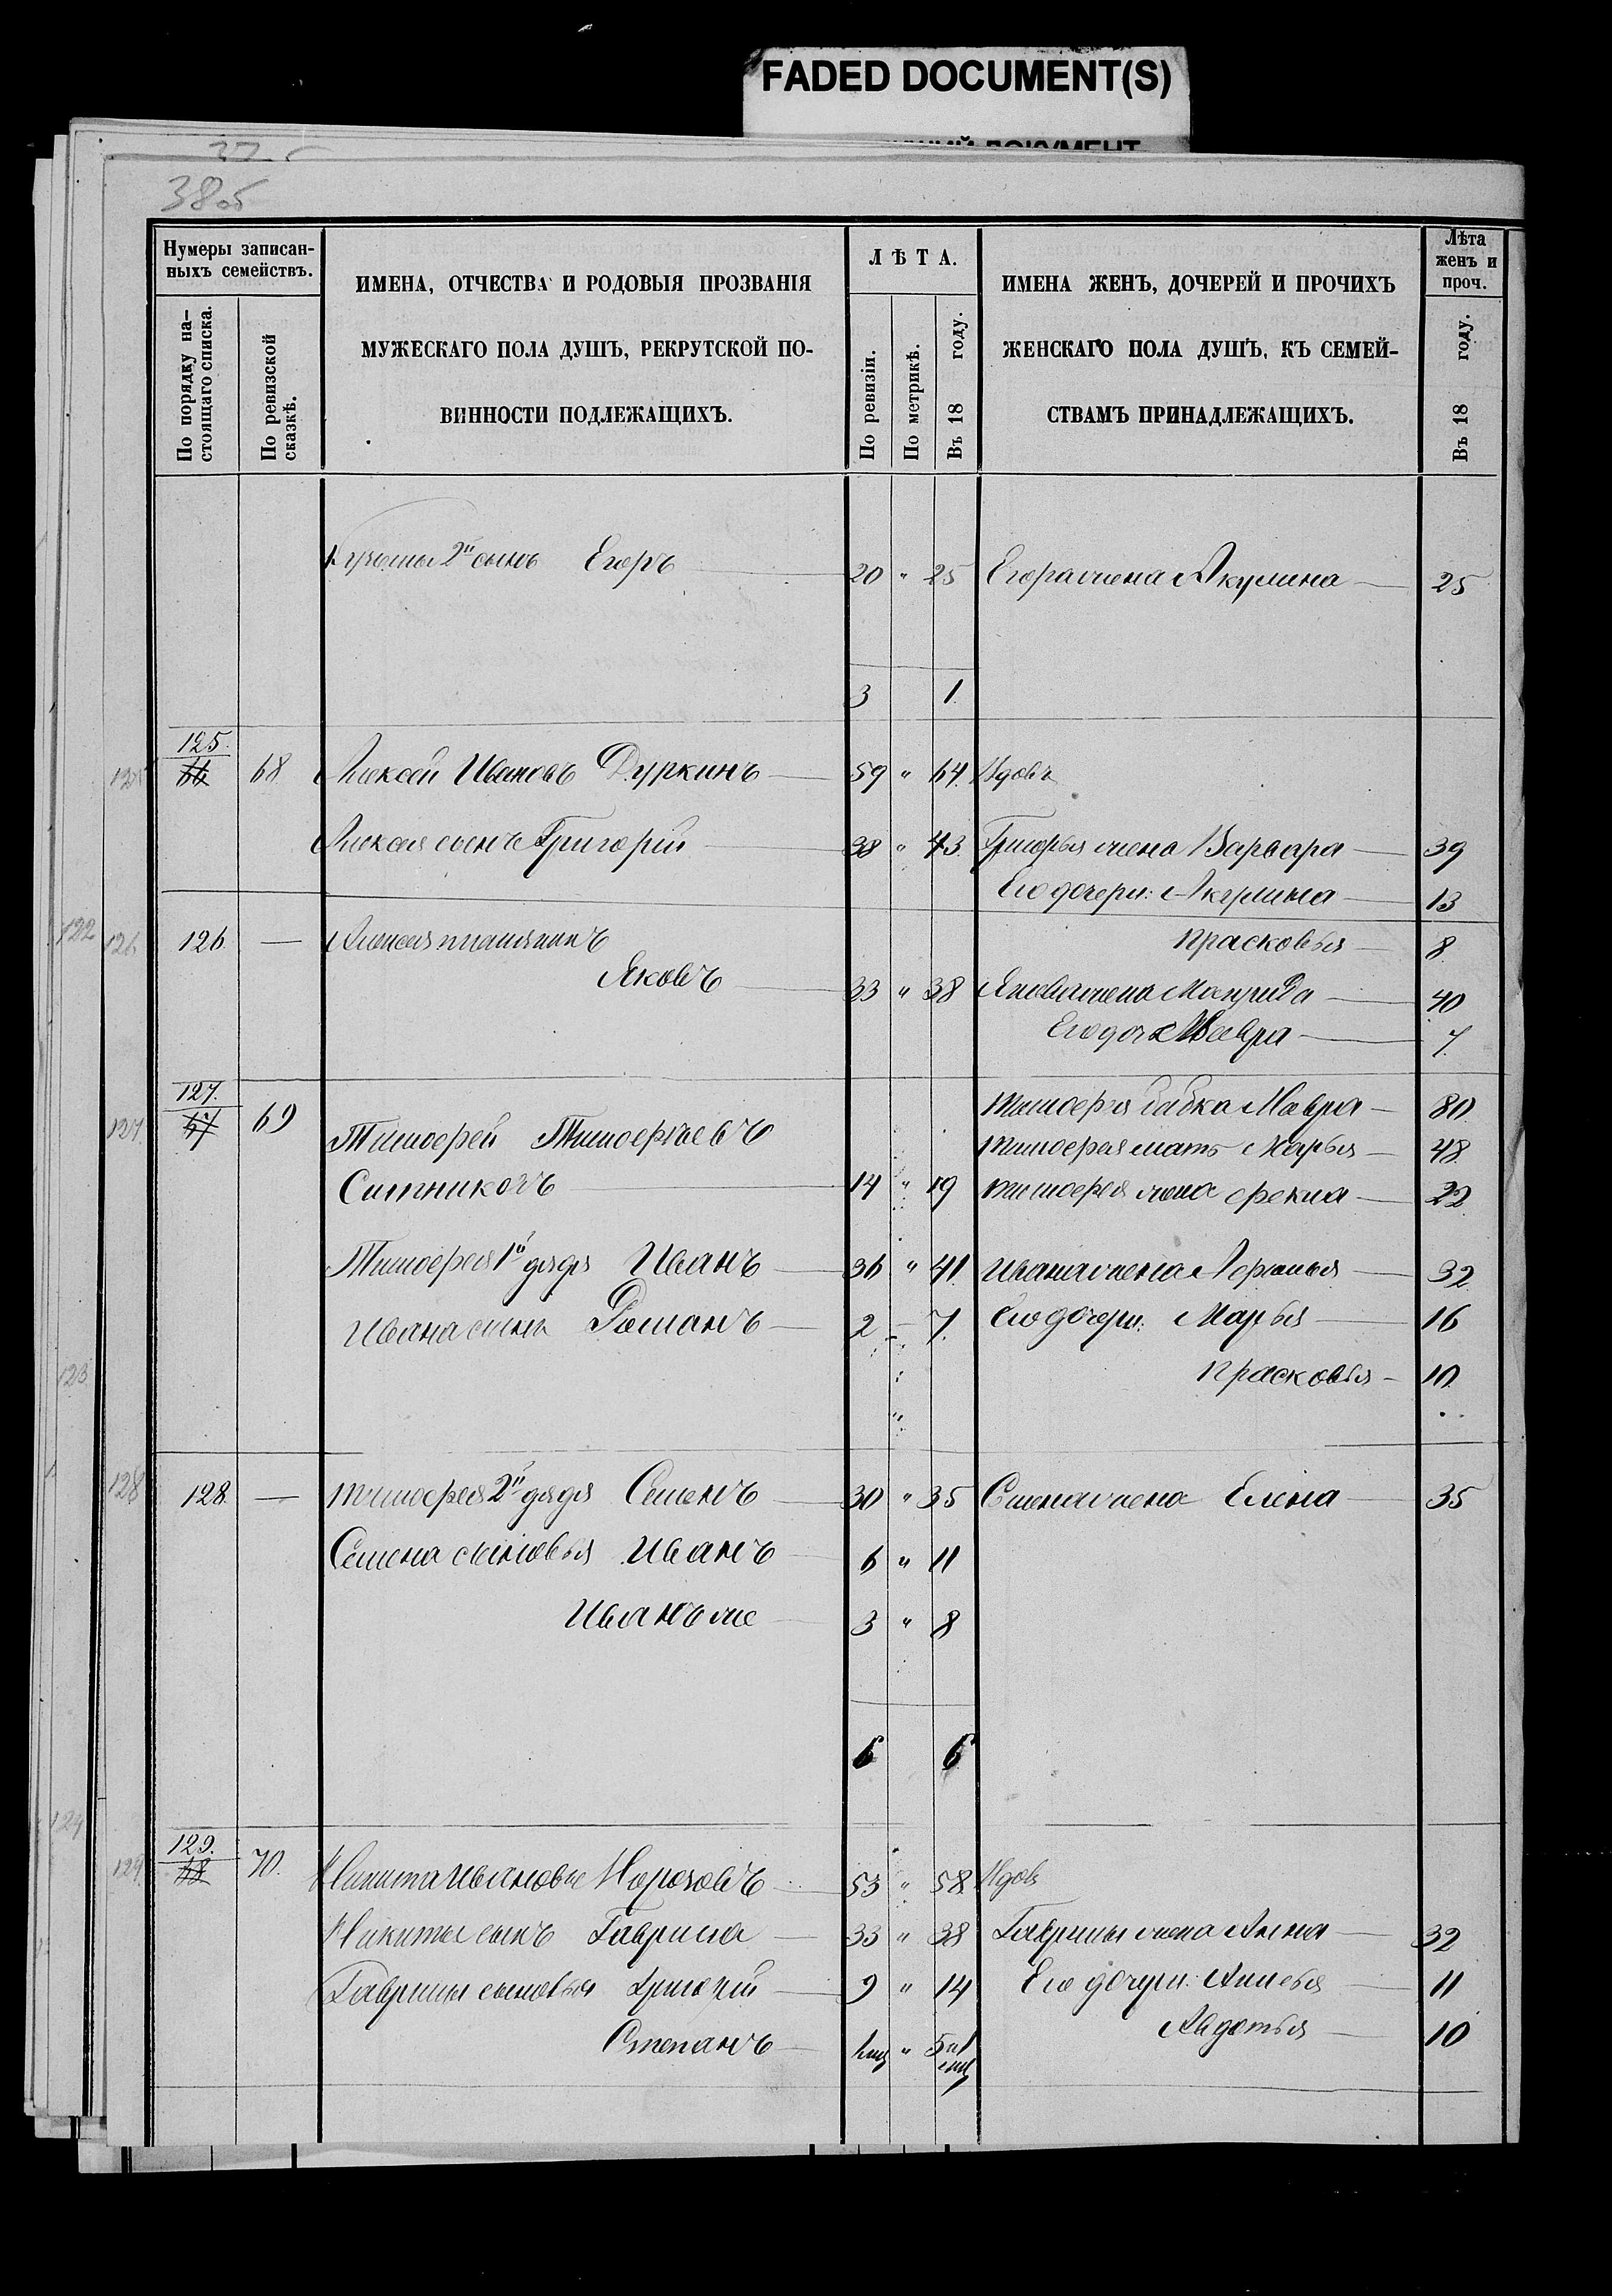 FADED DOCUMENT(S)
38об
Нумеры записан-
ныхъ семействъ.
По порядку на-
стоящаго списка.
По ревизской
сказкѣ.
ИМЕНА, ОТЧЕСТВА И РОДОВЫЯ ПРОЗВАНІЯ
МУЖЕСКАГО ПОЛА ДУШЪ, РЕКРУТСКОЙ ПО-
ВИННОСТИ ПОДЛЕЖАЩИХЪ.
ЛѢТА.
По ревизіи.
По метрикѣ.
Въ 18 году.
ИМЕНА ЖЕНЪ, ДОЧЕРЕЙ И ПРОЧИХЪ
ЖЕНСКАГО ПОЛА ДУШЪ, КЪ СЕМЕЙ-
СТВАМЪ ПРИНАДЛЕЖАЩИХЪ.
Лѣта
женъ и
проч.
Въ 18 году.
Кузьмы 2й сынъ Егоръ 20 " 25 Егора жена Акулина 25
3 1
125. 66 68 Алексѣй Ивановъ Дуркинъ 59 " 64 Вдовъ
Алексѣя сынъ Григорій 38 " 43 Григорья жена Варвара 39
Его дочери: Акулина 13
126. — Алексѣя племянникъ Прасковья 8
Яковъ 33 " 38 Якова жена Макрида 40
Его дочь Мавра 7
127. 67 69 Тимофея бабка Мавра 80
Тимофей Тимофѣевъ Тимофея мать Марья 48
Ситниковъ 14 " 19 Тимофея жена Фекла 22
Тимофея 1й дядя Иванъ 36 " 41 Ивана жена 32
Ивана сынъ Романъ 2 " 7 Его дочери: Марья 16
Прасковья 10
128. — Тимофея 2й дядя Семенъ 30 " 35 Семена жена Елена 35
Семена сыновья Иванъ 6 " 11
Иванъ же 3 " 8
6 6
129. 68 70. Никита Ивановъ Морозовъ 53 " 58 Вдовъ
Никиты сынъ Гаврила 33 " 38 Гаврилы жена Анна 32
Гаврилы сыновья Григорій 9 " 14 Его дочери: 11
Степанъ " Авдотья 10